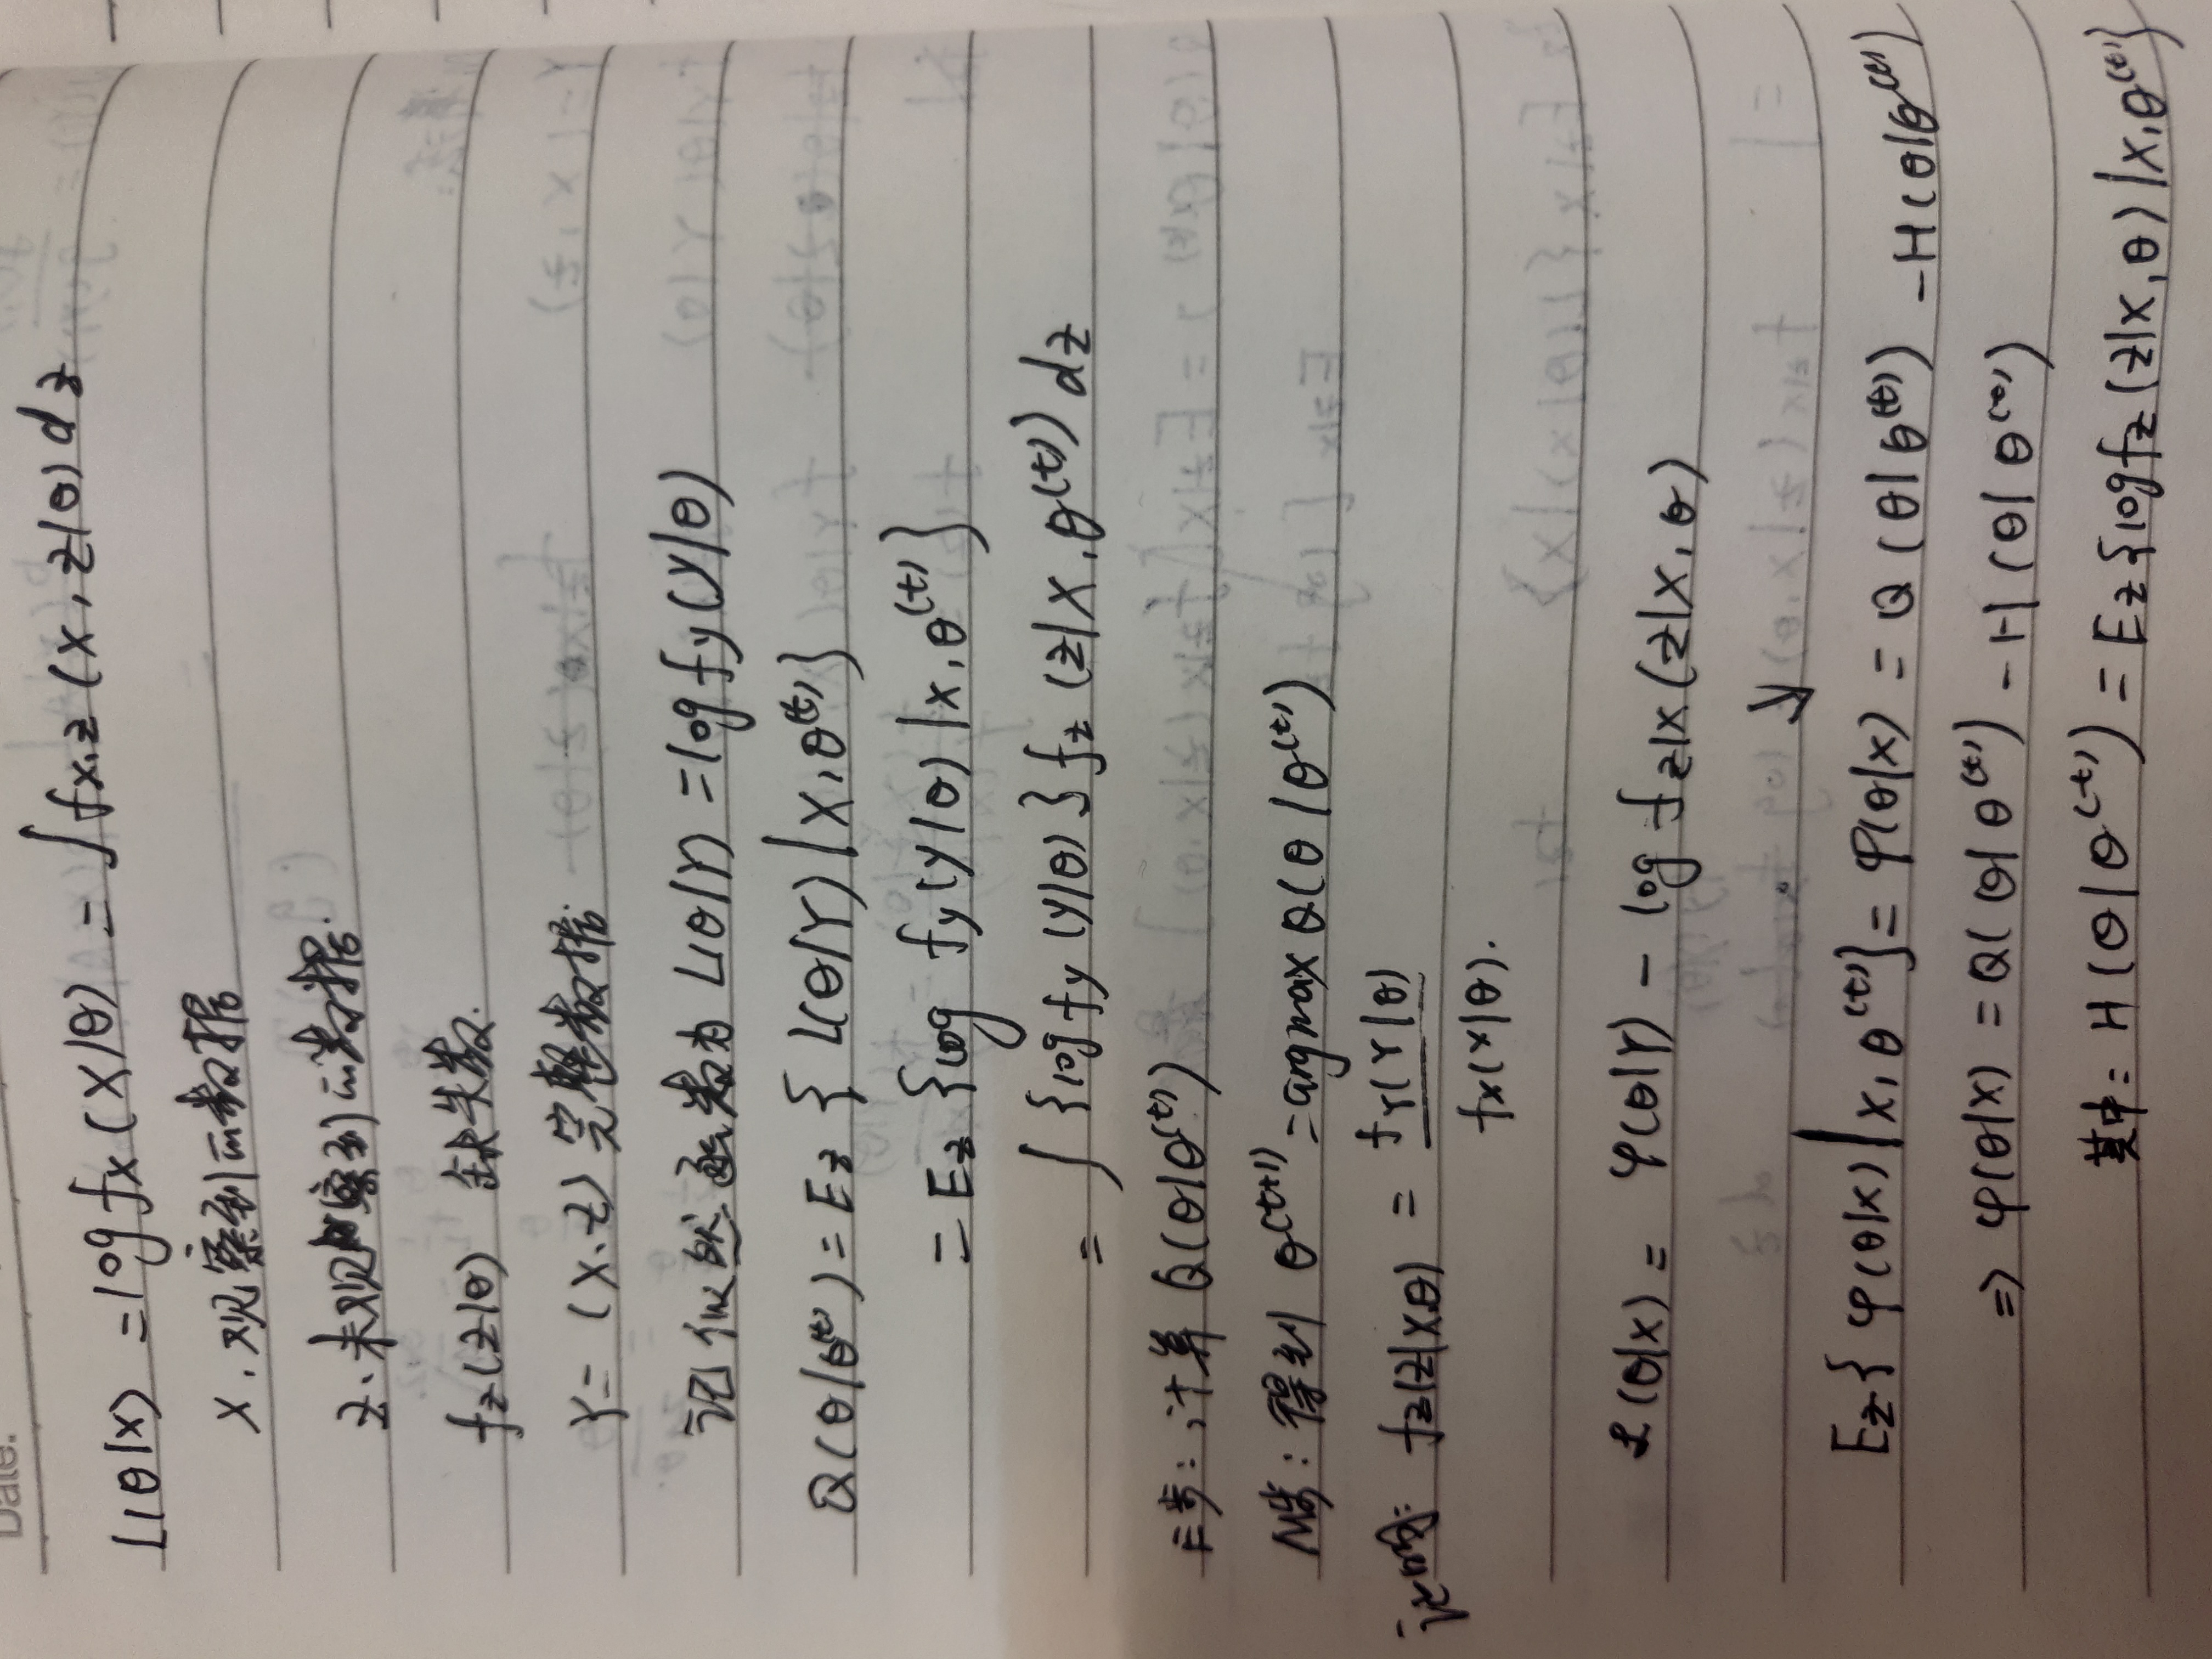 Date.
L(θ|x) = log fx (X|θ) = ∫ fx,z (x, z|θ) dz
X. 观察到的数据
z. 未观察到的数据.
fz(z|θ) 缺失数.
Y = (X, Z) 完整数据
记似然函数为 L(θ|Y) = log fy (y|θ)
Q(θ|θ^(t)) = Ez { L(θ|Y) | X, θ^(t) }
= Ez {log fy (y|θ) | x, θ^(t)}
= ∫ {log fy (y|θ)} fz (z|X, θ^(t)) dz
E步: 计算 Q(θ|θ^(t))
M步: 得到 θ^(t+1) = argmax Q(θ|θ^(t))
证明: fz(z|x,θ) = fY(Y|θ)
fx(x|θ).
ℓ(θ|x) = φ(θ|Y) - log fz|x (z|x, θ)
↓
Ez{ φ(θ|x) | x, θ^(t)} = φ(θ|x) = Q (θ|θ^(t)) - H(θ|θ^(t))
⇒ φ(θ|x) = Q(θ|θ^(t)) - H (θ|θ^(t))
其中: H(θ|θ^(t)) = Ez{log fz (z|x, θ) | x, θ^(t)}